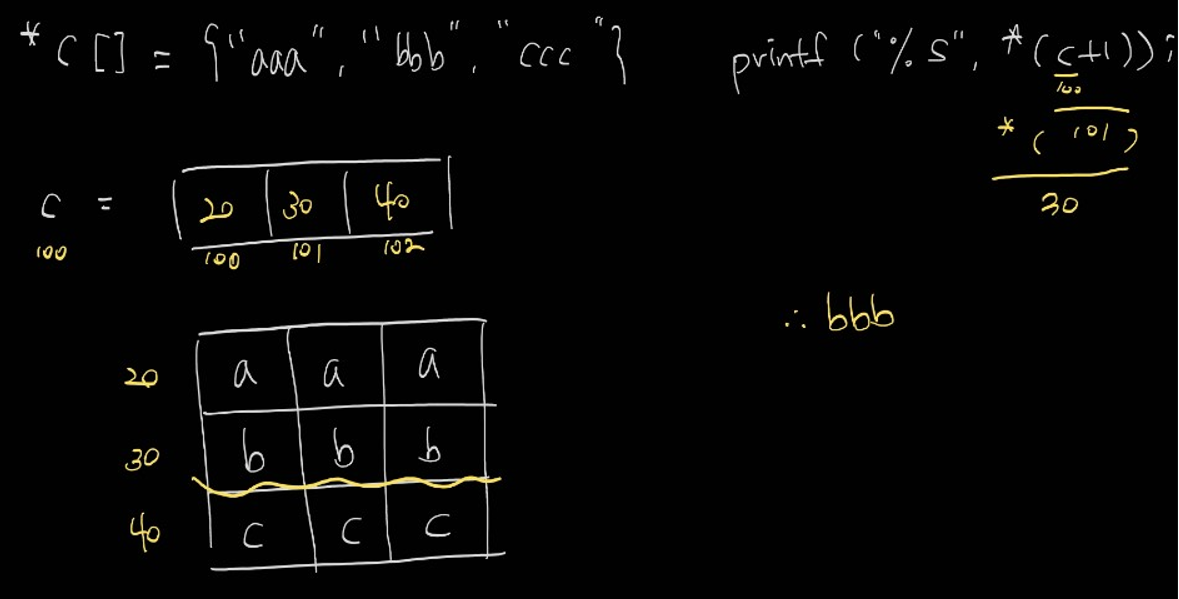 *c[] = {"aaa", "bbb", "ccc"}
printf ("%s", *(c+1));
100
*( 101 )
30
c =
100
20 30 40
100 101 102
∴ bbb
20 a a a
30 b b b
40 c c c